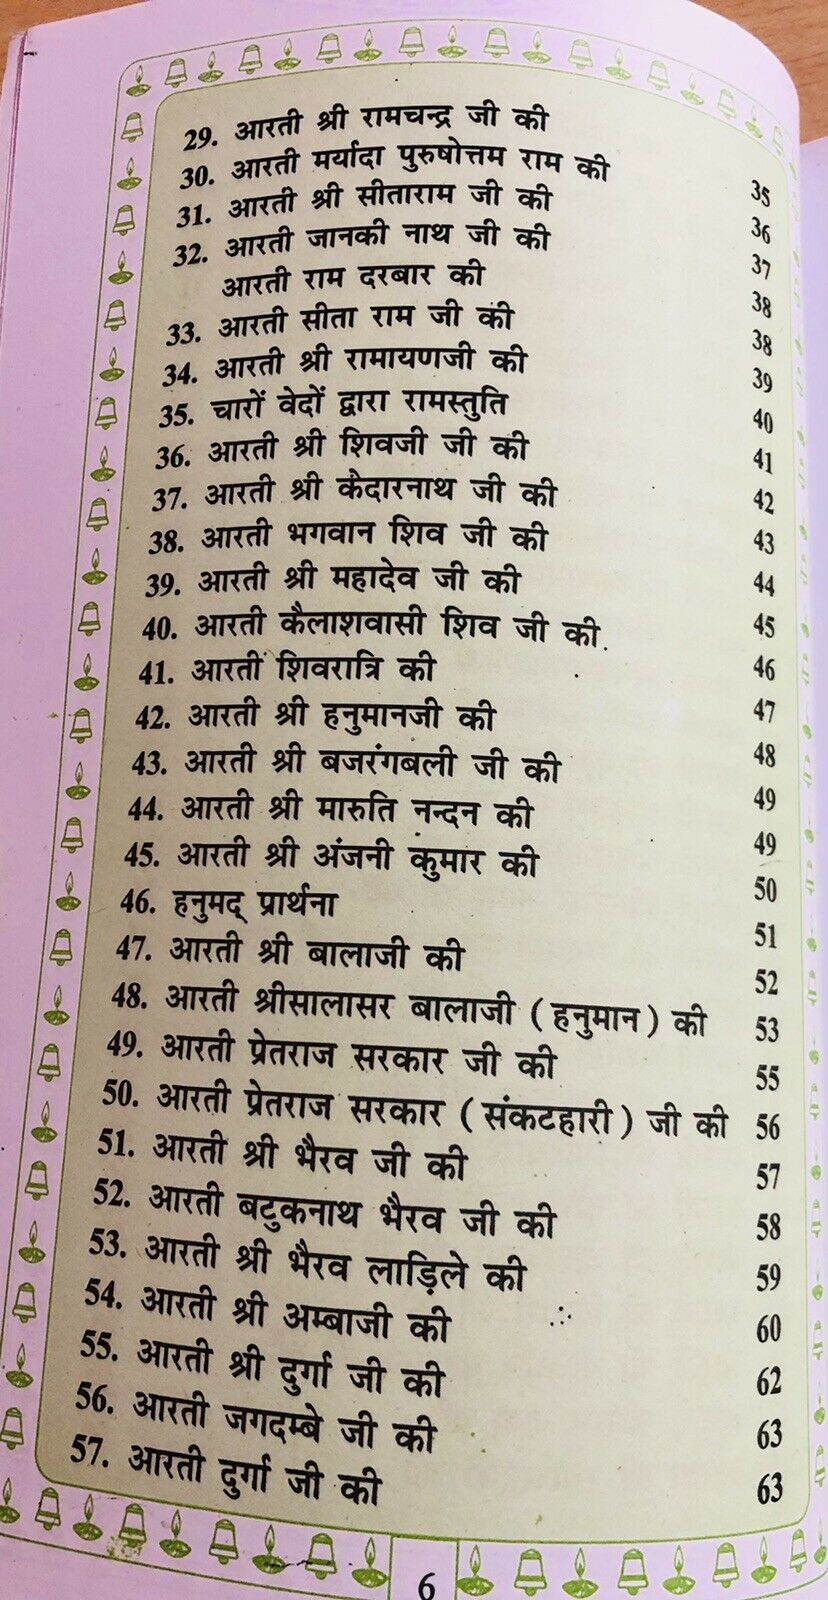 29. आरती श्री रामचन्द्र जी की 35
30. आरती मर्यादा पुरुषोत्तम राम की 36
31. आरती श्री सीताराम जी की 37
32. आरती जानकी नाथ जी की 38
आरती राम दरबार की 38
33. आरती सीता राम जी की 39
34. आरती श्री रामायणजी की 40
35. चारों वेदों द्वारा रामस्तुति 41
36. आरती श्री शिवजी जी की 42
37. आरती श्री केदारनाथ जी की 43
38. आरती भगवान शिव जी की 44
39. आरती श्री महादेव जी की 45
40. आरती कैलाशवासी शिव जी की 46
41. आरती शिवरात्रि की 47
42. आरती श्री हनुमानजी की 48
43. आरती श्री बजरंगबली जी की 49
44. आरती श्री मारुति नन्दन की 49
45. आरती श्री अंजनी कुमार की 50
46. हनुमद् प्रार्थना 51
47. आरती श्री बालाजी की 52
48. आरती श्रीसालासर बालाजी (हनुमान) की 53
49. आरती प्रेतराज सरकार जी की 55
50. आरती प्रेतराज सरकार (संकटहारी) जी की 56
51. आरती श्री भैरव जी की 57
52. आरती बटुकनाथ भैरव जी की 58
53. आरती श्री भैरव लाड़िले की 59
54. आरती श्री अम्बाजी की 60
55. आरती श्री दुर्गा जी की 62
56. आरती जगदम्बे जी की 63
57. आरती दुर्गा जी की 63
6